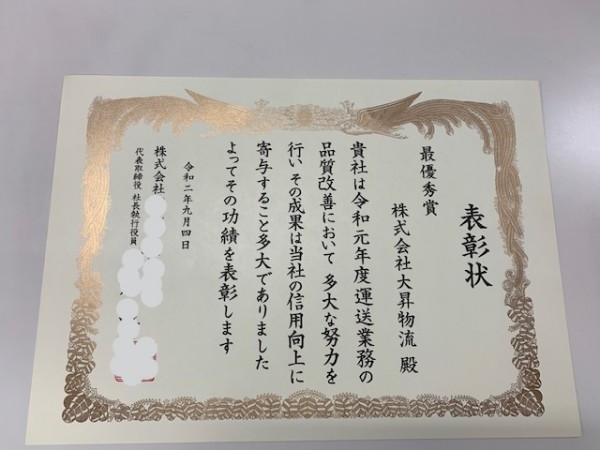 表彰状
最優秀賞
株式会社大昇物流 殿
貴社は令和元年度運送業務の
品質改善において 多大な努力を
行い その成果は当社の信用向上に
寄与すること多大でありました
よってその功績を表彰します
令和二年九月四日
株式会社
代表取締役 社長執行役員